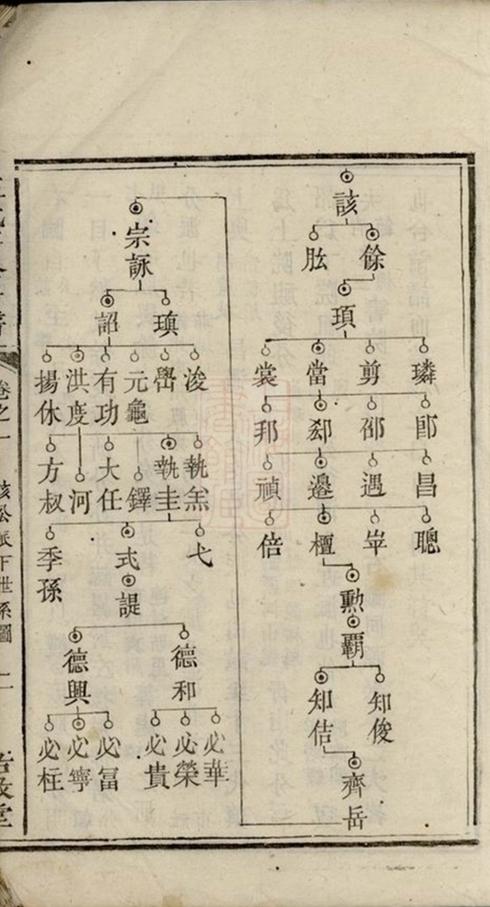 該
餘 肱
頊
璘 剪 當 裳
郎 邵 郄 邦
昌 遇 邉 禎
聰 峷 檀 倍
勲
覇
知俊 知佶
齊岳
宗詠
瑱 詔
浚 嚳 元龜 有功 洪度 揚休
執羔 執圭 鐸 大任 河 方叔
弋 式 季孫
諟
德和 德興
必華 必榮 必貴 必富 必寧 必枉
卷之一 該公派下世系圖 二